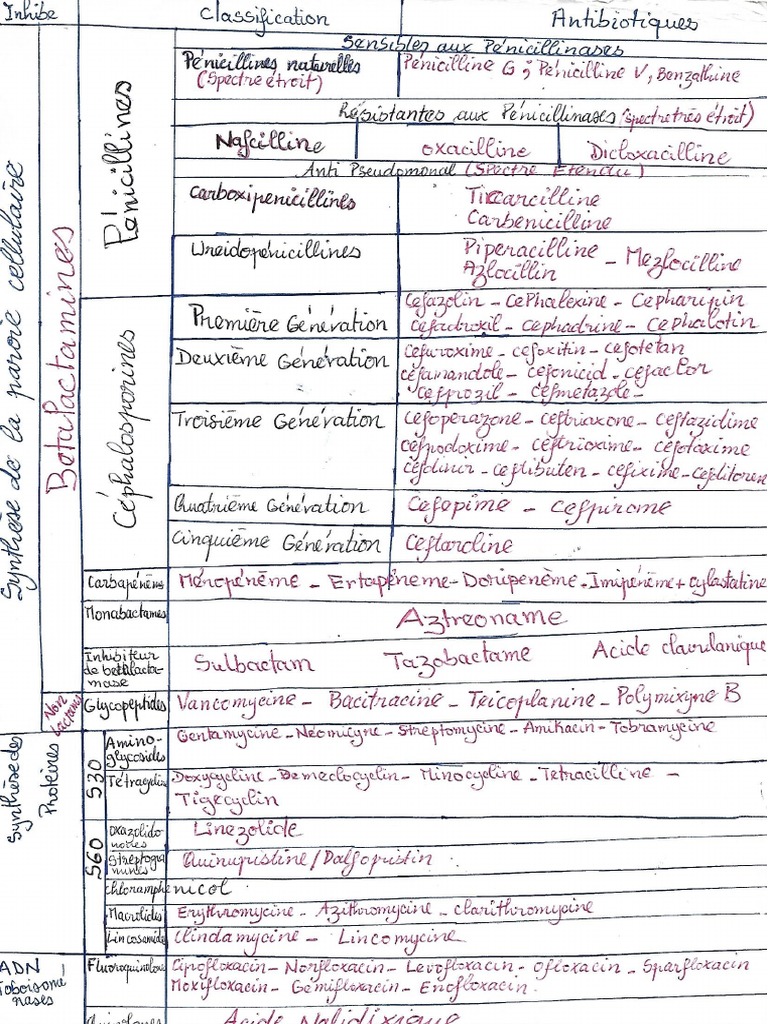 Inhibe Classification Antibiotiques
Sensibles aux Pénicillinases
Synthèse de la paroie cellulaire
Betalactamines
Pénicillines
Pénicillines naturelles Pénicilline G ; Pénicilline V, Benzathine
(Spectre étroit)
Résistantes aux Pénicillinases (spectre très étroit)
Nafcilline oxacilline Dicloxacilline
Anti Pseudomonal (Spectre Etendu)
Carboxipenicillines Ticarcilline
Carbenicilline
Ureidopénicillines Piperacilline - Mezlocilline
Azlocillin
Céphalosporines
Première Génération Cefazolin - cephalexine - cepharipin
cefadroxil - cephadrine - cephalotin
Deuxième Génération cefuroxime - cefoxitin - cefotetan
cefamandole - cefonicid - cefaclor
cefprozil - cefmetazole -
Troisième Génération cefoperazone - ceftriaxone - ceftazidime
cefpodoxime - ceftrioxime - cefotaxime
cefdinir - ceftibuten - cefixime - cefditoren
Quatrième Génération Cefepime - cefpirome
Cinquième Génération Ceftaroline
Carbapénèms Méropénème - Ertapénème - Doripenème - Imipénème + cylastatine
Monobactames Aztreoname
Inhibiteur de betalacta-mase Sulbactam Tazobactame Acide clavulanique
Non lactams Glycopeptides Vancomycine - Bacitracine - Teicoplanine - Polymixyne B
Synthèse des Protéines
S30
Amino-glycosides Gentamycine - Neomicyne - Streptomycine - Amikacin - Tobramycine
Tétracyclin Doxycycline - Demeclocyclin - Minocycline - Tetracilline -
Tigecyclin
S60
oxazolido Linezolide
Streptogra Quinupristine/Dalfopristin
chloramphenicol
Macrolides Erythromycine - Azithromycine - clarithromycine
Lincosamide Clindamycine - Lincomycine
ADN
Fluoroquinolone Ciprofloxacin - Norfloxacin - Levofloxacin - Ofloxacin - Sparfloxacin
Moxifloxacin - Gemifloxacin - Enofloxacin.
Quinolones Acide Nalidixique